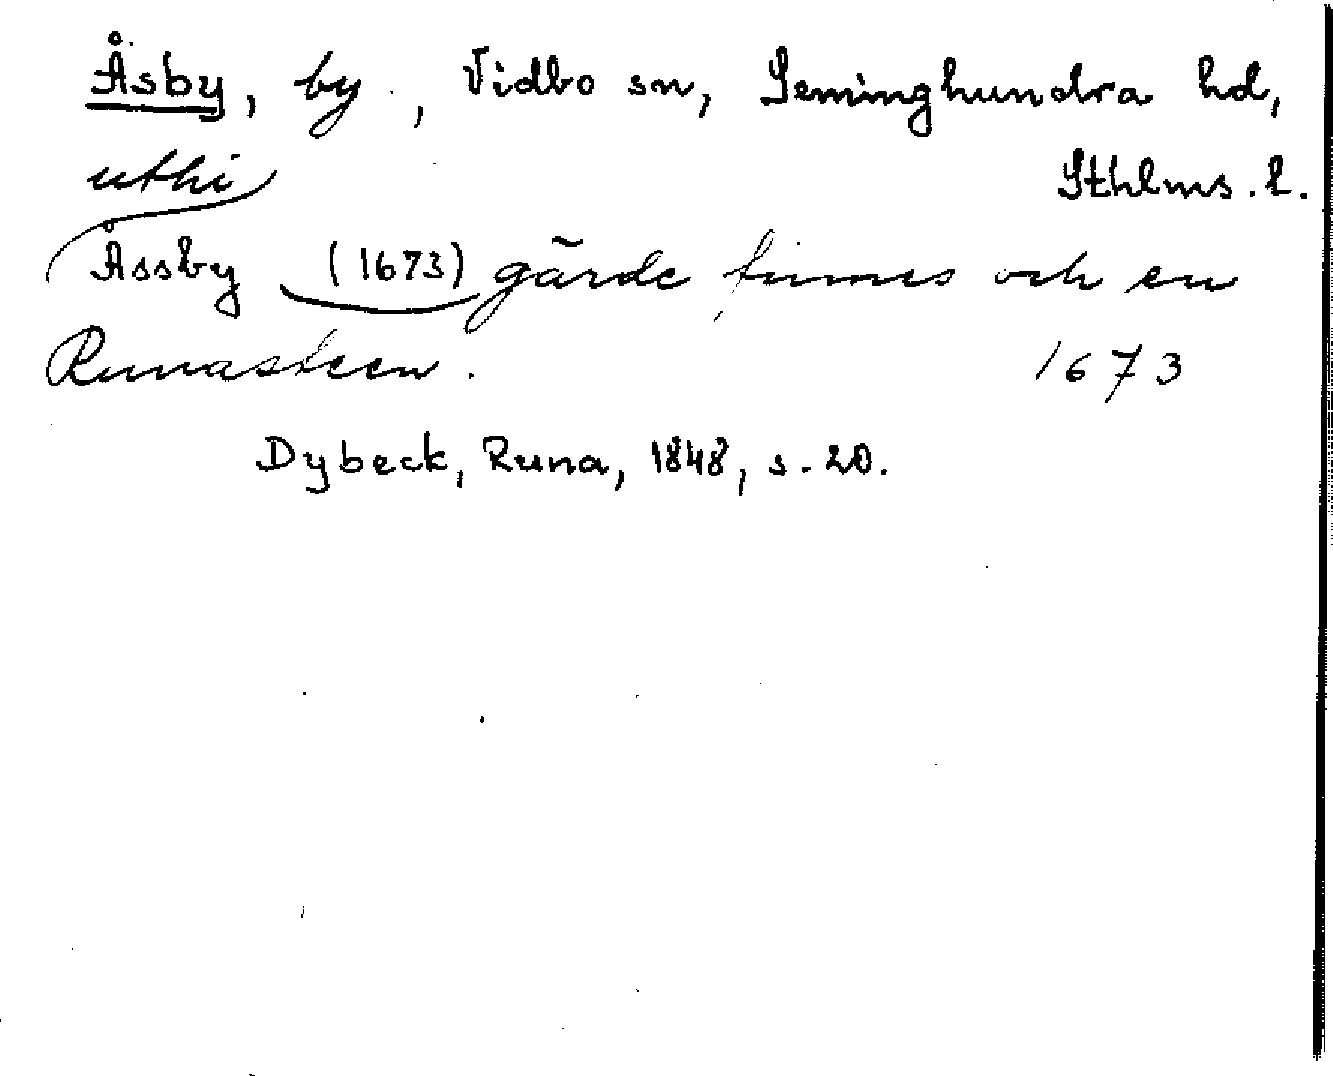 Åsby, by, Vidbo sn, Seminghundra hd,
uthi Sthlms. l.
Åssby (1673) gärde finnes och en
Runasteen. 1673
Dybeck, Runa, 1848, s. 20.